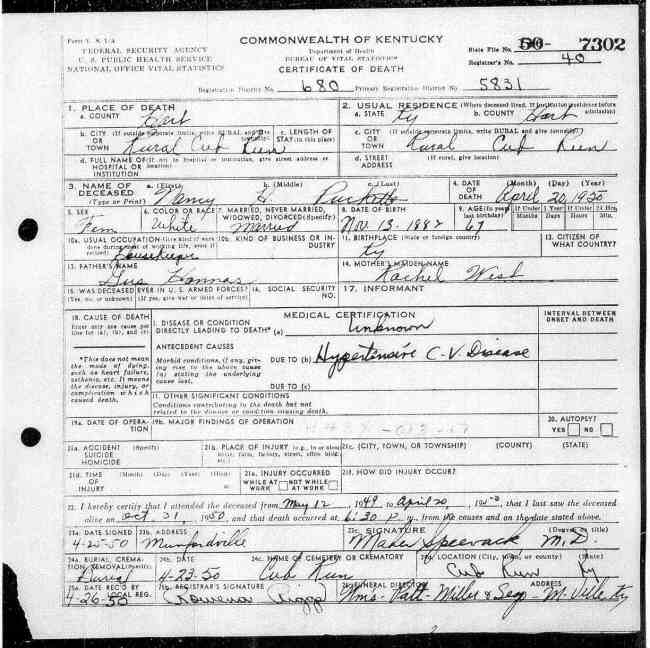 Form V. S. 1-A
FEDERAL SECURITY AGENCY
U. S. PUBLIC HEALTH SERVICE
NATIONAL OFFICE VITAL STATISTICS
COMMONWEALTH OF KENTUCKY
Department of Health
BUREAU OF VITAL STATISTICS
CERTIFICATE OF DEATH
State File No. 50- 7302
Registrar's No. 40
Registration District No. 680 Primary Registration District No. 5831
1. PLACE OF DEATH
a. COUNTY Hart
2. USUAL RESIDENCE (Where deceased lived. If institution: residence before admission)
a. STATE Ky b. COUNTY Hart
b. CITY (If outside corporate limits, write RURAL and give OR TOWN Rural Cub Run
c. LENGTH OF STAY (in this place)
c. CITY (If outside corporate limits, write RURAL and give township)
OR TOWN Rural Cub Run
d. FULL NAME OF (If not in hospital or institution, give street address or location)
HOSPITAL OR INSTITUTION
d. STREET ADDRESS (If rural, give location)
3. NAME OF DECEASED (Type or Print)
a. (First) Nancy b. (Middle) H. c. (Last) Puckett
4. DATE OF DEATH (Month) (Day) (Year) April 20, 1950
5. SEX Fem
6. COLOR OR RACE White
7. MARRIED, NEVER MARRIED, WIDOWED, DIVORCED (Specify) Married
8. DATE OF BIRTH Nov 13. 1882
9. AGE (In years last birthday) 67
If Under 1 Year Months Days
If Under 24 Hrs. Hours Min.
10a. USUAL OCCUPATION (Give kind of work done during most of working life, even if retired) Housekeeper
10b. KIND OF BUSINESS OR INDUSTRY
11. BIRTHPLACE (State or foreign country) Ky
12. CITIZEN OF WHAT COUNTRY?
13. FATHER'S NAME Gus
14. MOTHER'S MAIDEN NAME Rachel West
15. WAS DECEASED EVER IN U. S. ARMED FORCES?
(Yes, no, or unknown) (If yes, give war or dates of service)
16. SOCIAL SECURITY NO.
17. INFORMANT
18. CAUSE OF DEATH
Enter only one cause per line for (a), (b), and (c)
MEDICAL CERTIFICATION
INTERVAL BETWEEN ONSET AND DEATH
I. DISEASE OR CONDITION DIRECTLY LEADING TO DEATH* (a) Unknown
*This does not mean the mode of dying, such as heart failure, asthenia, etc. It means the disease, injury, or complication which caused death.
ANTECEDENT CAUSES
Morbid conditions, if any, giving rise to the above cause (a) stating the underlying cause last.
DUE TO (b) Hypertensive C-V. Disease
DUE TO (c)
II. OTHER SIGNIFICANT CONDITIONS
Conditions contributing to the death but not related to the disease or condition causing death.
19a. DATE OF OPERATION
19b. MAJOR FINDINGS OF OPERATION
20. AUTOPSY? YES NO
21a. ACCIDENT SUICIDE HOMICIDE (Specify)
21b. PLACE OF INJURY (e.g., in or about home, farm, factory, street, office bldg.,
21c. (CITY, TOWN, OR TOWNSHIP) (COUNTY) (STATE)
21d. TIME OF INJURY (Month) (Day) (Year) (Hour)
21e. INJURY OCCURRED WHILE AT WORK NOT WHILE AT WORK
21f. HOW DID INJURY OCCUR?
22. I hereby certify that I attended the deceased from May 12, 1949 to April 20, that I last saw the deceased
alive on Oct 31, 1950, and that death occurred at 6:30 p m, from the causes and on the date stated above.
23a. DATE SIGNED 4-25-50
23b. ADDRESS Munfordville
23c. SIGNATURE Speevack M.D. (Degree or title)
24a. BURIAL, CREMATION, REMOVAL (Specify) Burial
24b. DATE 4-23-50
24c. NAME OF CEMETERY OR CREMATORY Cub Run
24d. LOCATION (City, town, or county) (State) Cub Run Ky
25a. DATE REC'D BY LOCAL REG. 4-26-50
25b. REGISTRAR'S SIGNATURE Rowena
26. FUNERAL DIRECTOR ADDRESS